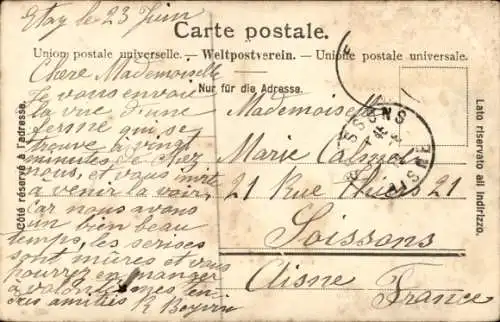 Etoy le 23 Juin
Carte postale.
Union postale universelle. — Weltpostverein. — Unione postale universale.
Nur für die Adresse.
Côté réservé à l'adresse.
Lato riservato all indirizzo.
Chere Mademoiselle
Je vous envoie
la vue d'une
ferme qui se
trouve à vingt
minutes de chez
nous, et vous invite
a venir la voir,
car nous avons
un bien beau
temps, les serises
sont mûres et vous
pourrez en manger
à volonté mes ten-
dres amitiés R
Mademoiselle
Marie
21 Rue Thiers 21
Soissons
Aisne
France
SOISSONS
AISNE